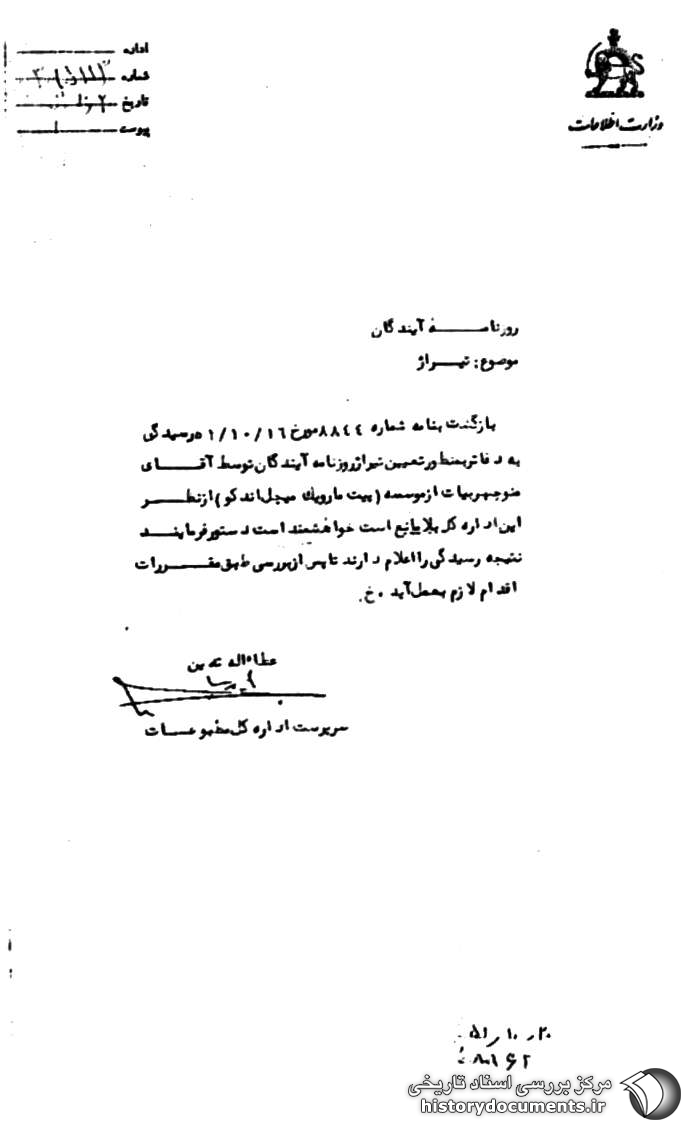 وزارت اطلاعات
اداره
شماره
تاریخ
پیوست
روزنامـــه آیندگان
موضوع: تیـــراژ
بازگشت بنامه شماره ۸۸۴۴ مورخ ۱/۱۰/۱۶ درسیدگی
به دفاتر بمنظور تعیین تیراژ روزنامه آیندگان توسط آقـــای
منوچهر بیات از موسسه (پیت مارویک میچل اند کو) از نظـــر
این اداره کل بلامانع است خواهشمند است دستور فرماینـــد
نتیجه رسیدگی را اعلام دارند تا پس از بررسی طبق مقـــررات
اقدام لازم بعمل آید ۰خ.
عطاءاله تدین
سرپرست اداره کل مطبوعـــات
۲۰ ر ۱۰ ر ۵۱
مرکز بررسی اسناد تاریخی
historydocuments.ir